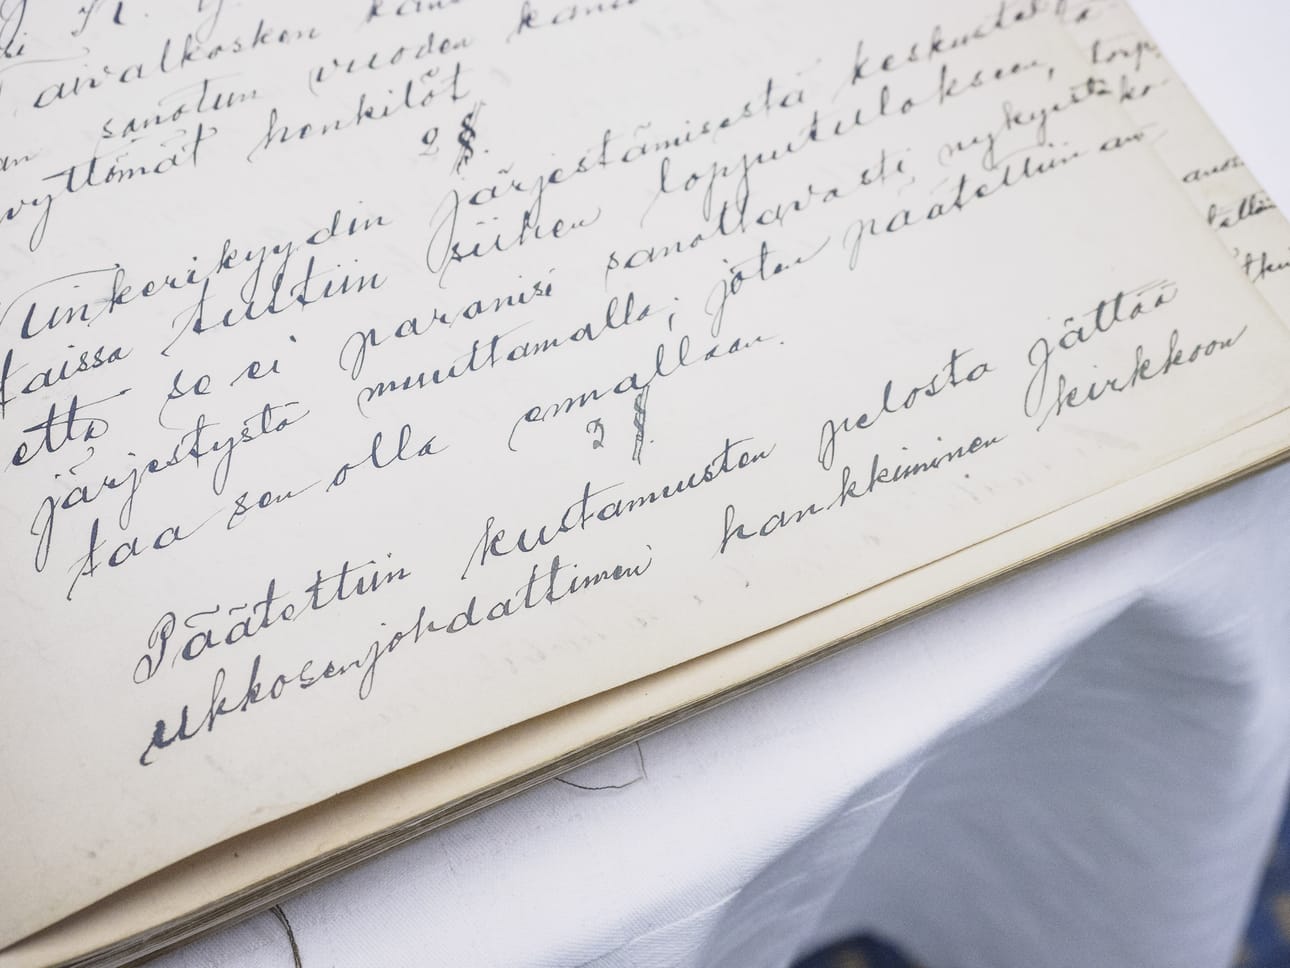 Taivalkosken
sanotun vuoden
henkilöt
2 §.
Tinkerikyydin järjestämisestä keskustel-
taissa tultiin siihen lopputulokseen,
että se ei paranisi sanottavasti nykyistä
järjestystä muuttamalla, joten päätettiin an-
taa sen olla ennallaan.
3 §.
Päätettiin kustannusten pelosta jättää
ukkosenjohdattimen hankkiminen kirkkoon